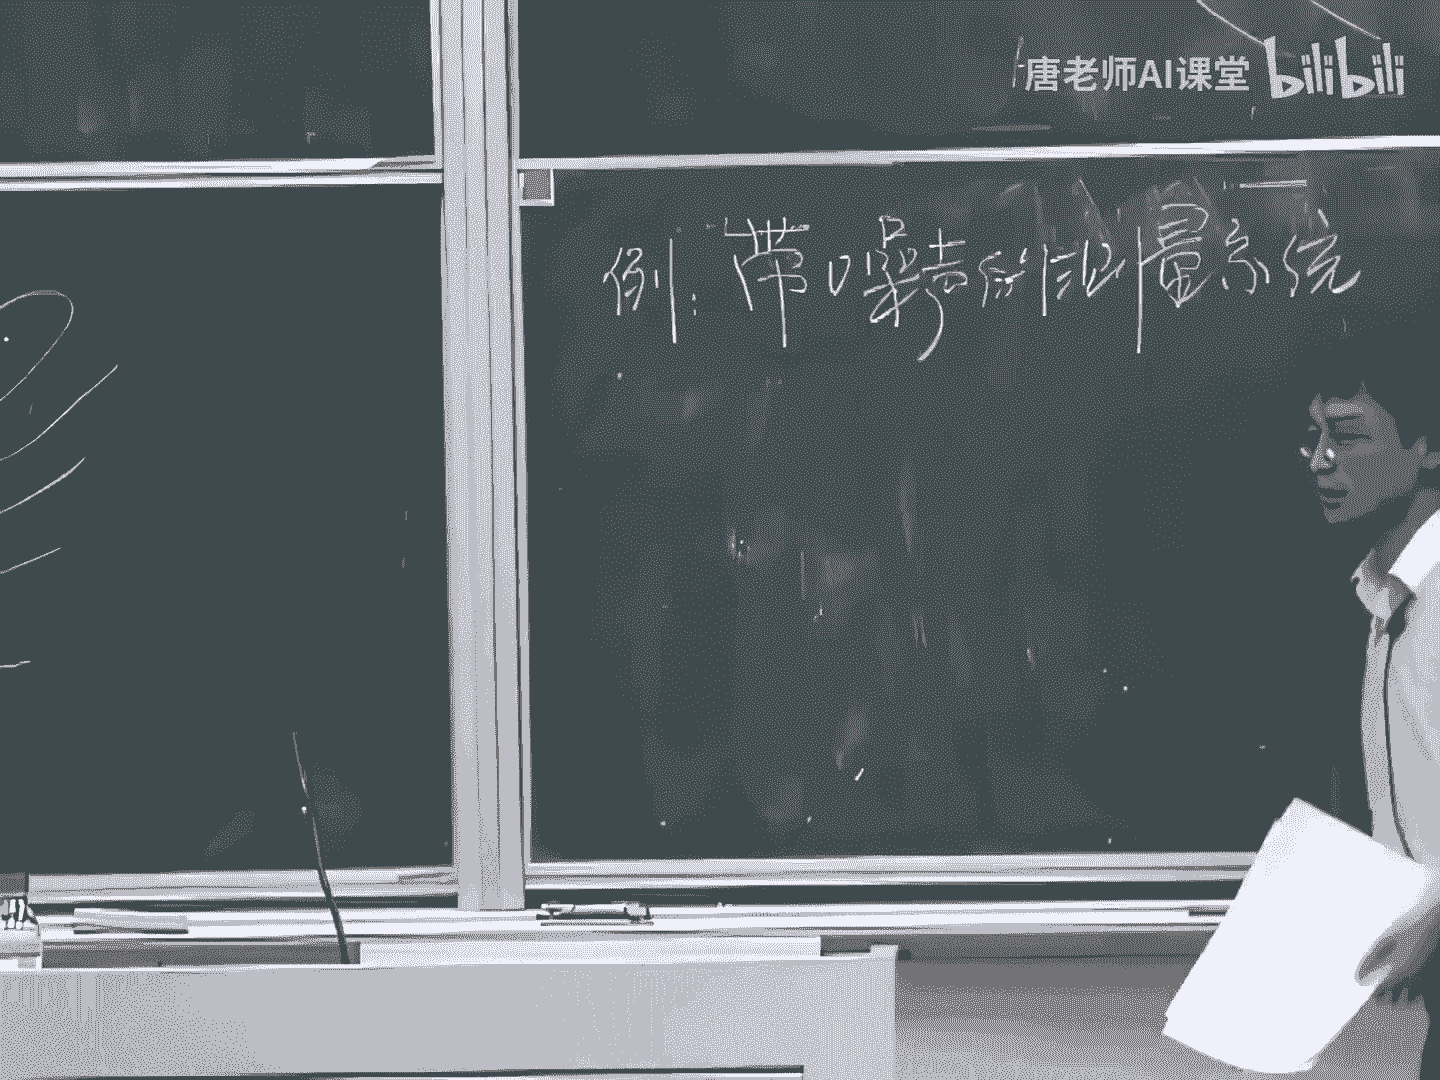 唐老师AI课堂 bilibili
例：带噪声的测量系统